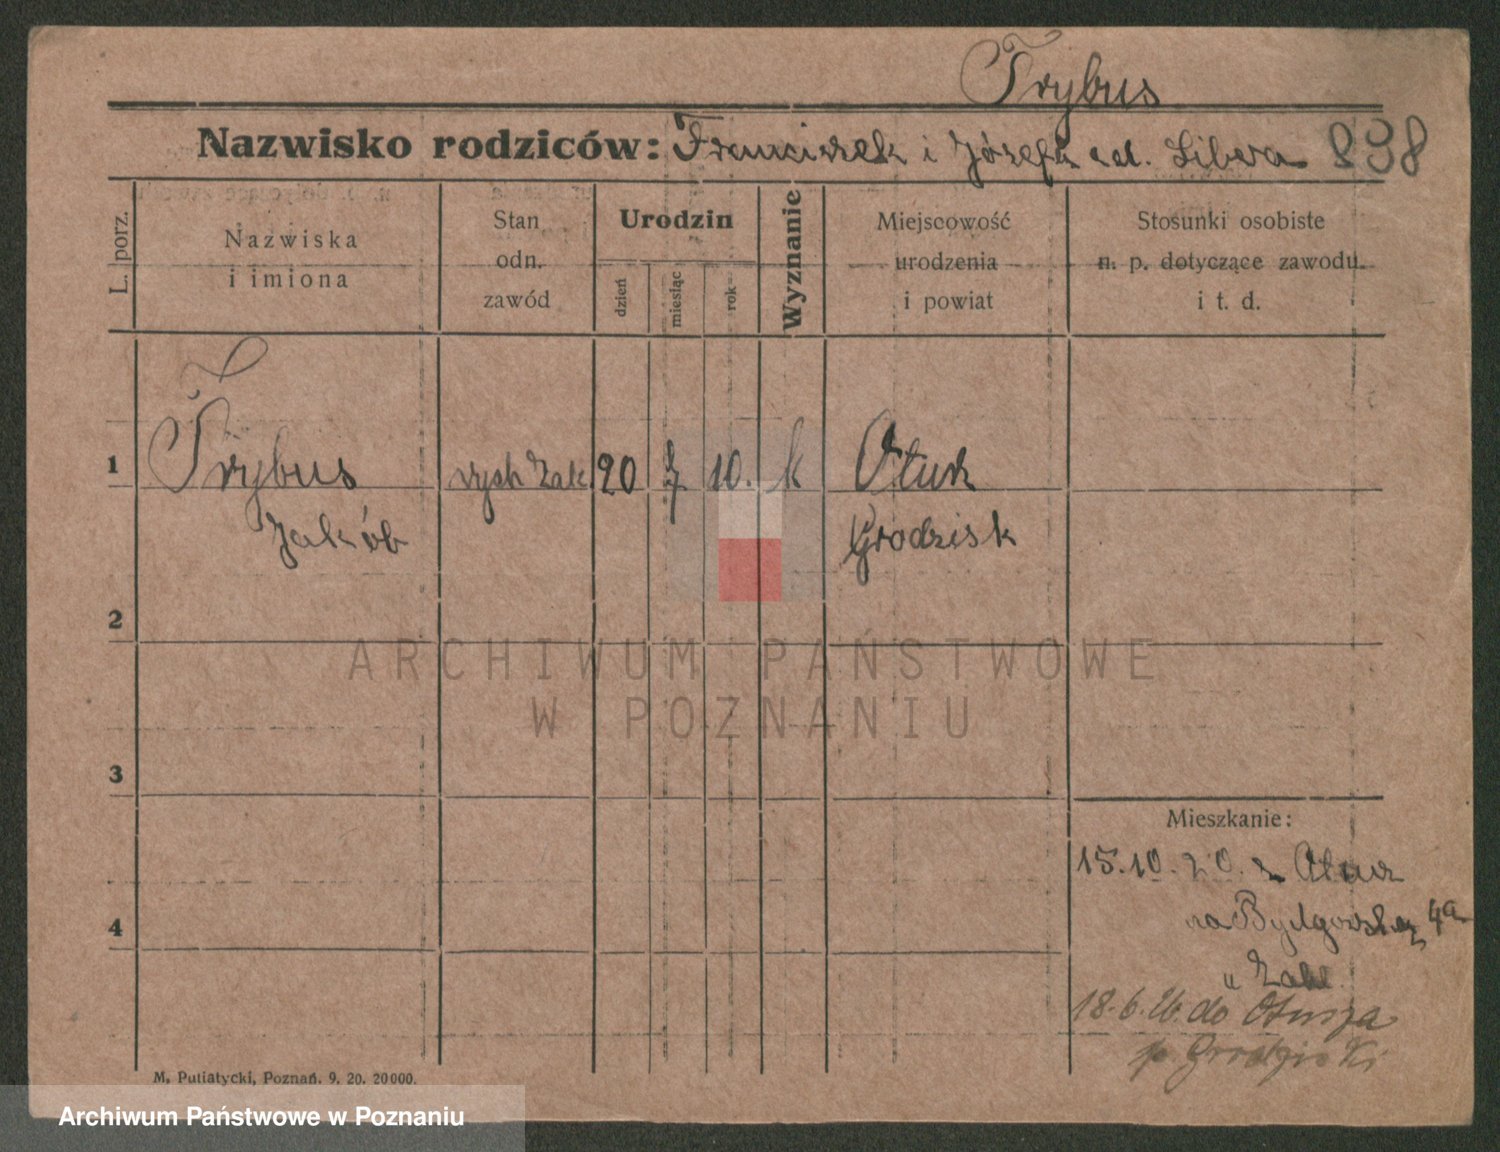 Trybus
Nazwisko rodziców: Franciszek i Józefa od. Libera 838
L. porz.
Nazwiska
i imiona
Stan
odn.
zawód
Urodzin
dzień
miesiąc
rok
Wyznanie
Miejscowość
urodzenia
i powiat
Stosunki osobiste
n. p. dotyczące zawodu
i t. d.
1 Trybus 20 7 10. k Otusz
Jakób Grodzisk
2
3
4
Mieszkanie:
15.10.20. z Otusz
na Bydgowska 4a
" Zakł.
18.6.26. do Otusza
p. Grodziski
M. Putiatycki, Poznań. 9. 20. 20000.
ARCHIWUM PAŃSTWOWE
W POZNANIU
Archiwum Państwowe w Poznaniu